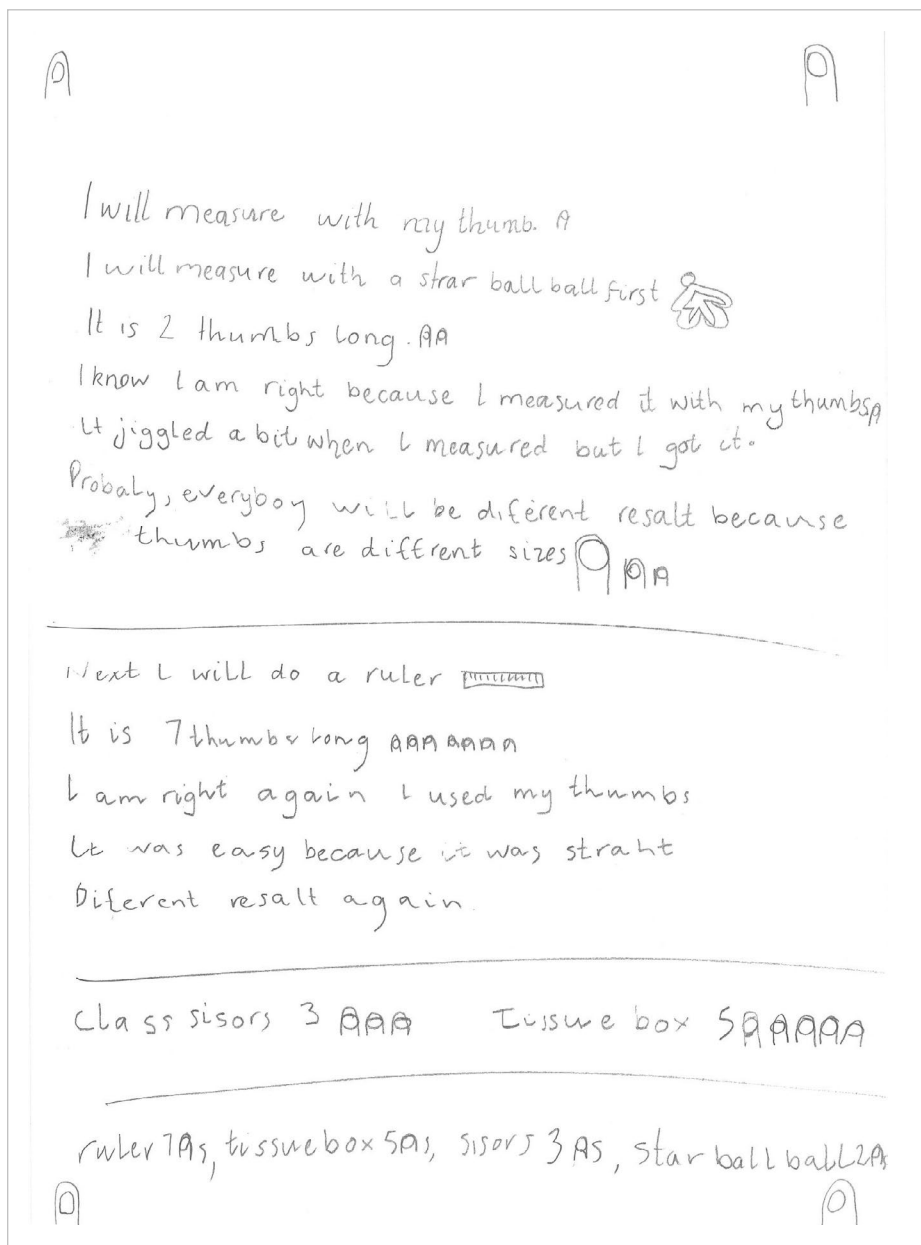 I will measure with my thumb.
I will measure with a strar ball ball first
It is 2 thumbs long.
I know I am right because I measured it with my thumbs
It jiggled a bit when I measured but I got it.
Probaly, everyboy will be diferent resalt because
thumbs are diffrent sizes
Next I will do a ruler
It is 7 thumbs long
I am right again I used my thumbs
It was easy because it was straht
Diferent resalt again.
class sisors 3 tissue box 5
ruler 7 s, tissue box 5 s, sisors 3 s, star ball ball 2 s